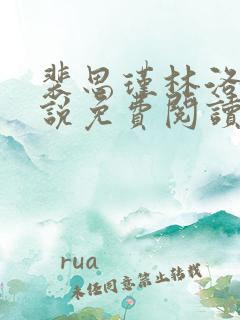 裴恩瑾林洛
說免費閱讀
rua
未经同意禁止转载